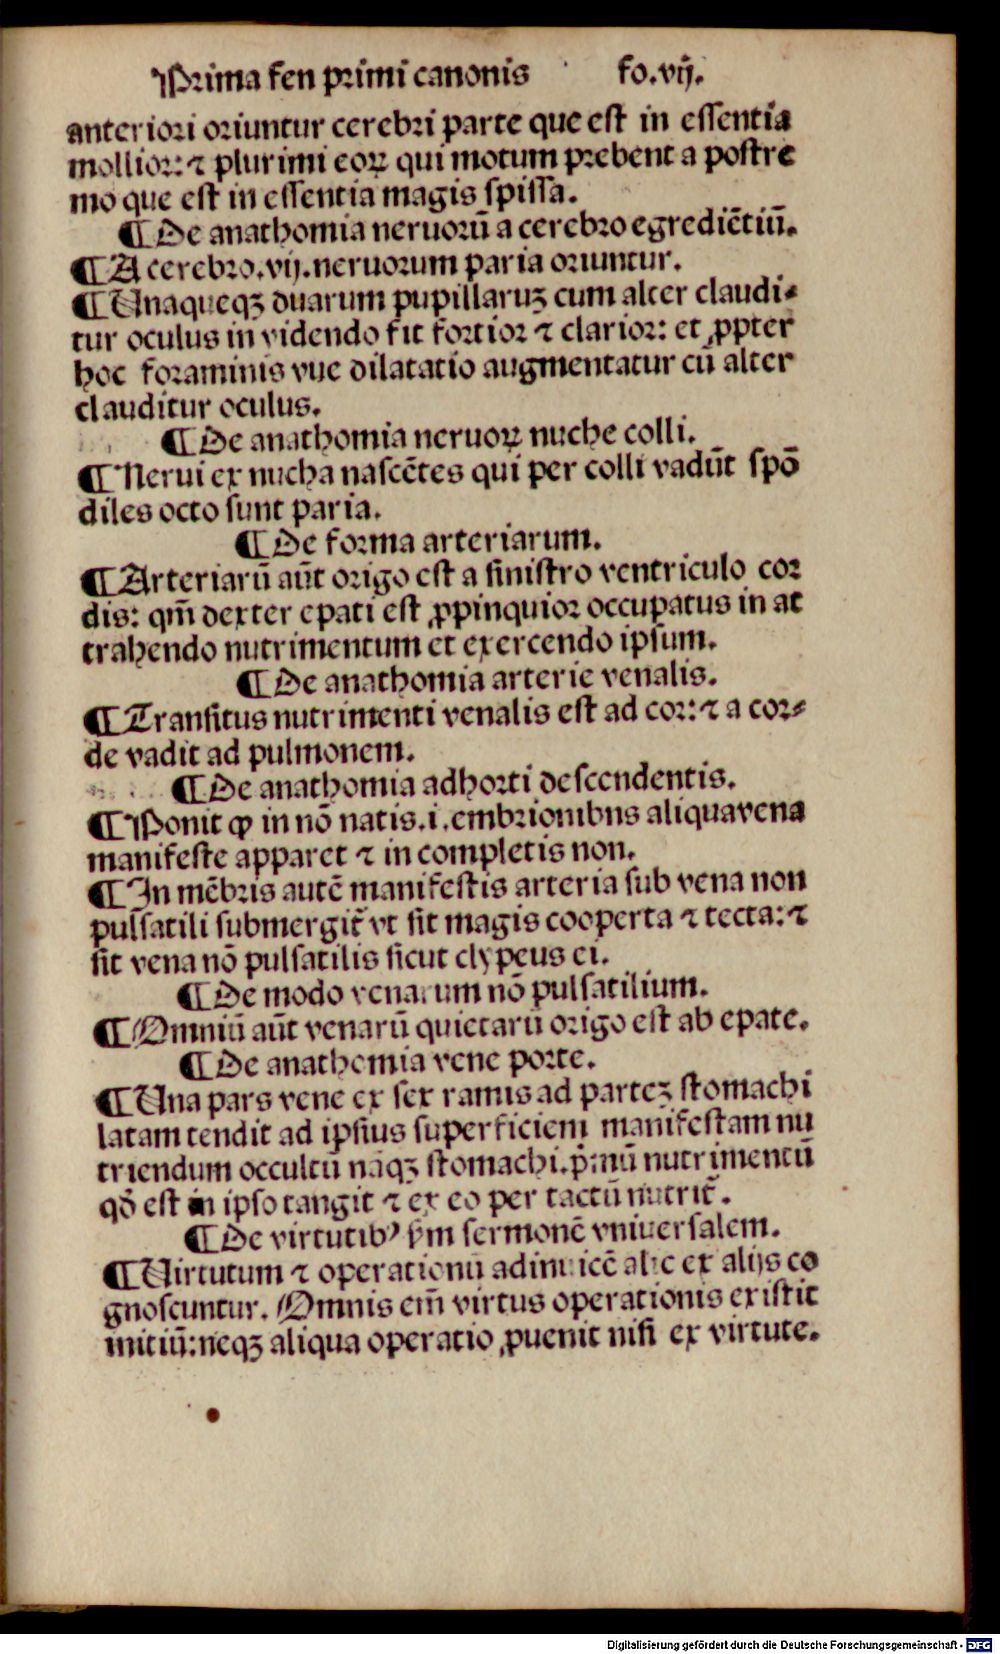 Prima fen primi canonis fo.vij.
anteriori oriuntur cerebri parte que est in essentia
mollior: ⁊ plurimi eoꝝ qui motum prebent a postre
mo que est in essentia magis spissa.
¶ De anathomia neruorū a cerebro egrediētiū.
¶ A cerebro.vij.neruorum paria oriuntur.
¶ Unaqueqꝫ duarum pupillaruꝫ cum alter claudi-
tur oculus in videndo fit fortior ⁊ clarior: et ꝓpter
hoc foraminis vue dilatatio augmentatur cū alter
clauditur oculus.
¶ De anathomia neruoꝝ nuche colli.
¶ Nerui ex nucha nascētes qui per colli vadūt spō
diles octo sunt paria.
¶ De forma arteriarum.
¶ Arteriarū aūt origo est a sinistro ventriculo cor
dis: qm̄ dexter epati est ꝓpinquior occupatus in at
trahendo nutrimentum et exercendo ipsum.
¶ De anathomia arterie venalis.
¶ Transitus nutrimenti venalis est ad cor: ⁊ a cor-
de vadit ad pulmonem.
¶ De anathomia adhorti descendentis.
¶ Ponit ꝙ in nō natis.i.embrionibns aliquavena
manifeste apparet ⁊ in completis non.
¶ In mēbris autē manifestis arteria sub vena non
pulsatili submergit̄ vt sit magis cooperta ⁊ tecta: ⁊
sit vena nō pulsatilis sicut clypeus ei.
¶ De modo venarum nō pulsatilium.
¶ Omniū aūt venarū quietarū origo est ab epate.
¶ De anathomia vene porte.
¶ Una pars vene ex sex ramis ad parteꝫ stomachi
latam tendit ad ipsius superficiem manifestam nu
triendum occultū nāqꝫ stomachi.p̄imū nutrimentū
qd̄ est in ipso tangit ⁊ ex eo per tactū nutrit̄.
¶ De virtutibꝰ ẜm sermonē vniuersalem.
¶ Uirtutum ⁊ operationū adinuicē alie ex alijs co
gnoscuntur. Omnis em̄ virtus operationis existit
initiū: neqꝫ aliqua operatio ꝓuenit nisi ex virtute.
Digitalisierung gefördert durch die Deutsche Forschungsgemeinschaft - DFG